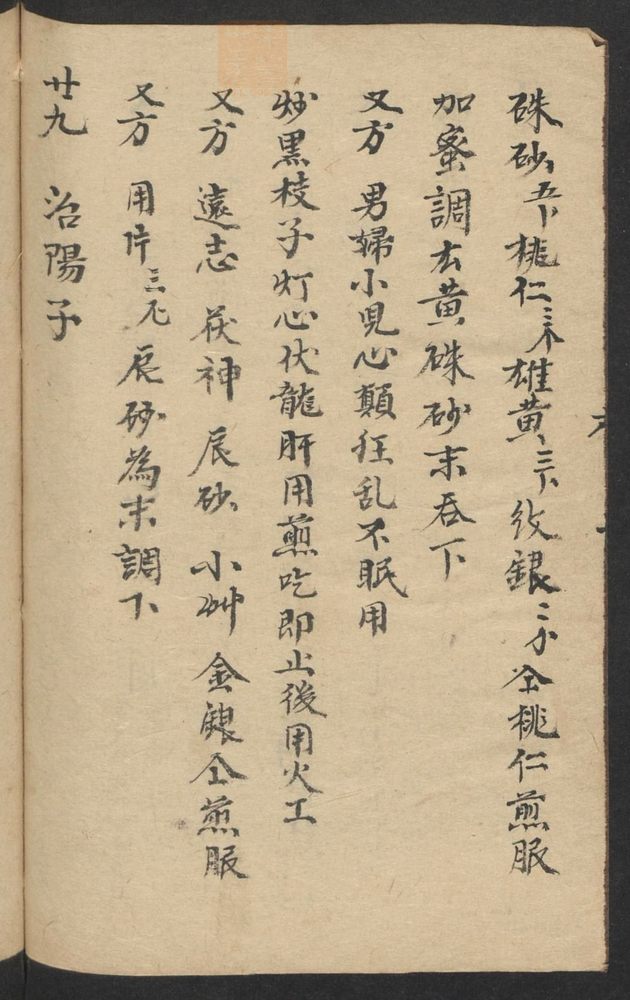 硃砂五卜桃仁三不雄黃三卜纹銀二分仝桃仁煎服
加蜜調去黃硃砂末吞下
又方 男婦小児心顛狂乱不眠用
炒黒枝子灯心伏龍肝用煎吃即止後用火工
又方 遠志 茯神 辰砂 小艸 金銀仝煎服
又方 用片三厘辰砂為末調下
廿九 治陽子